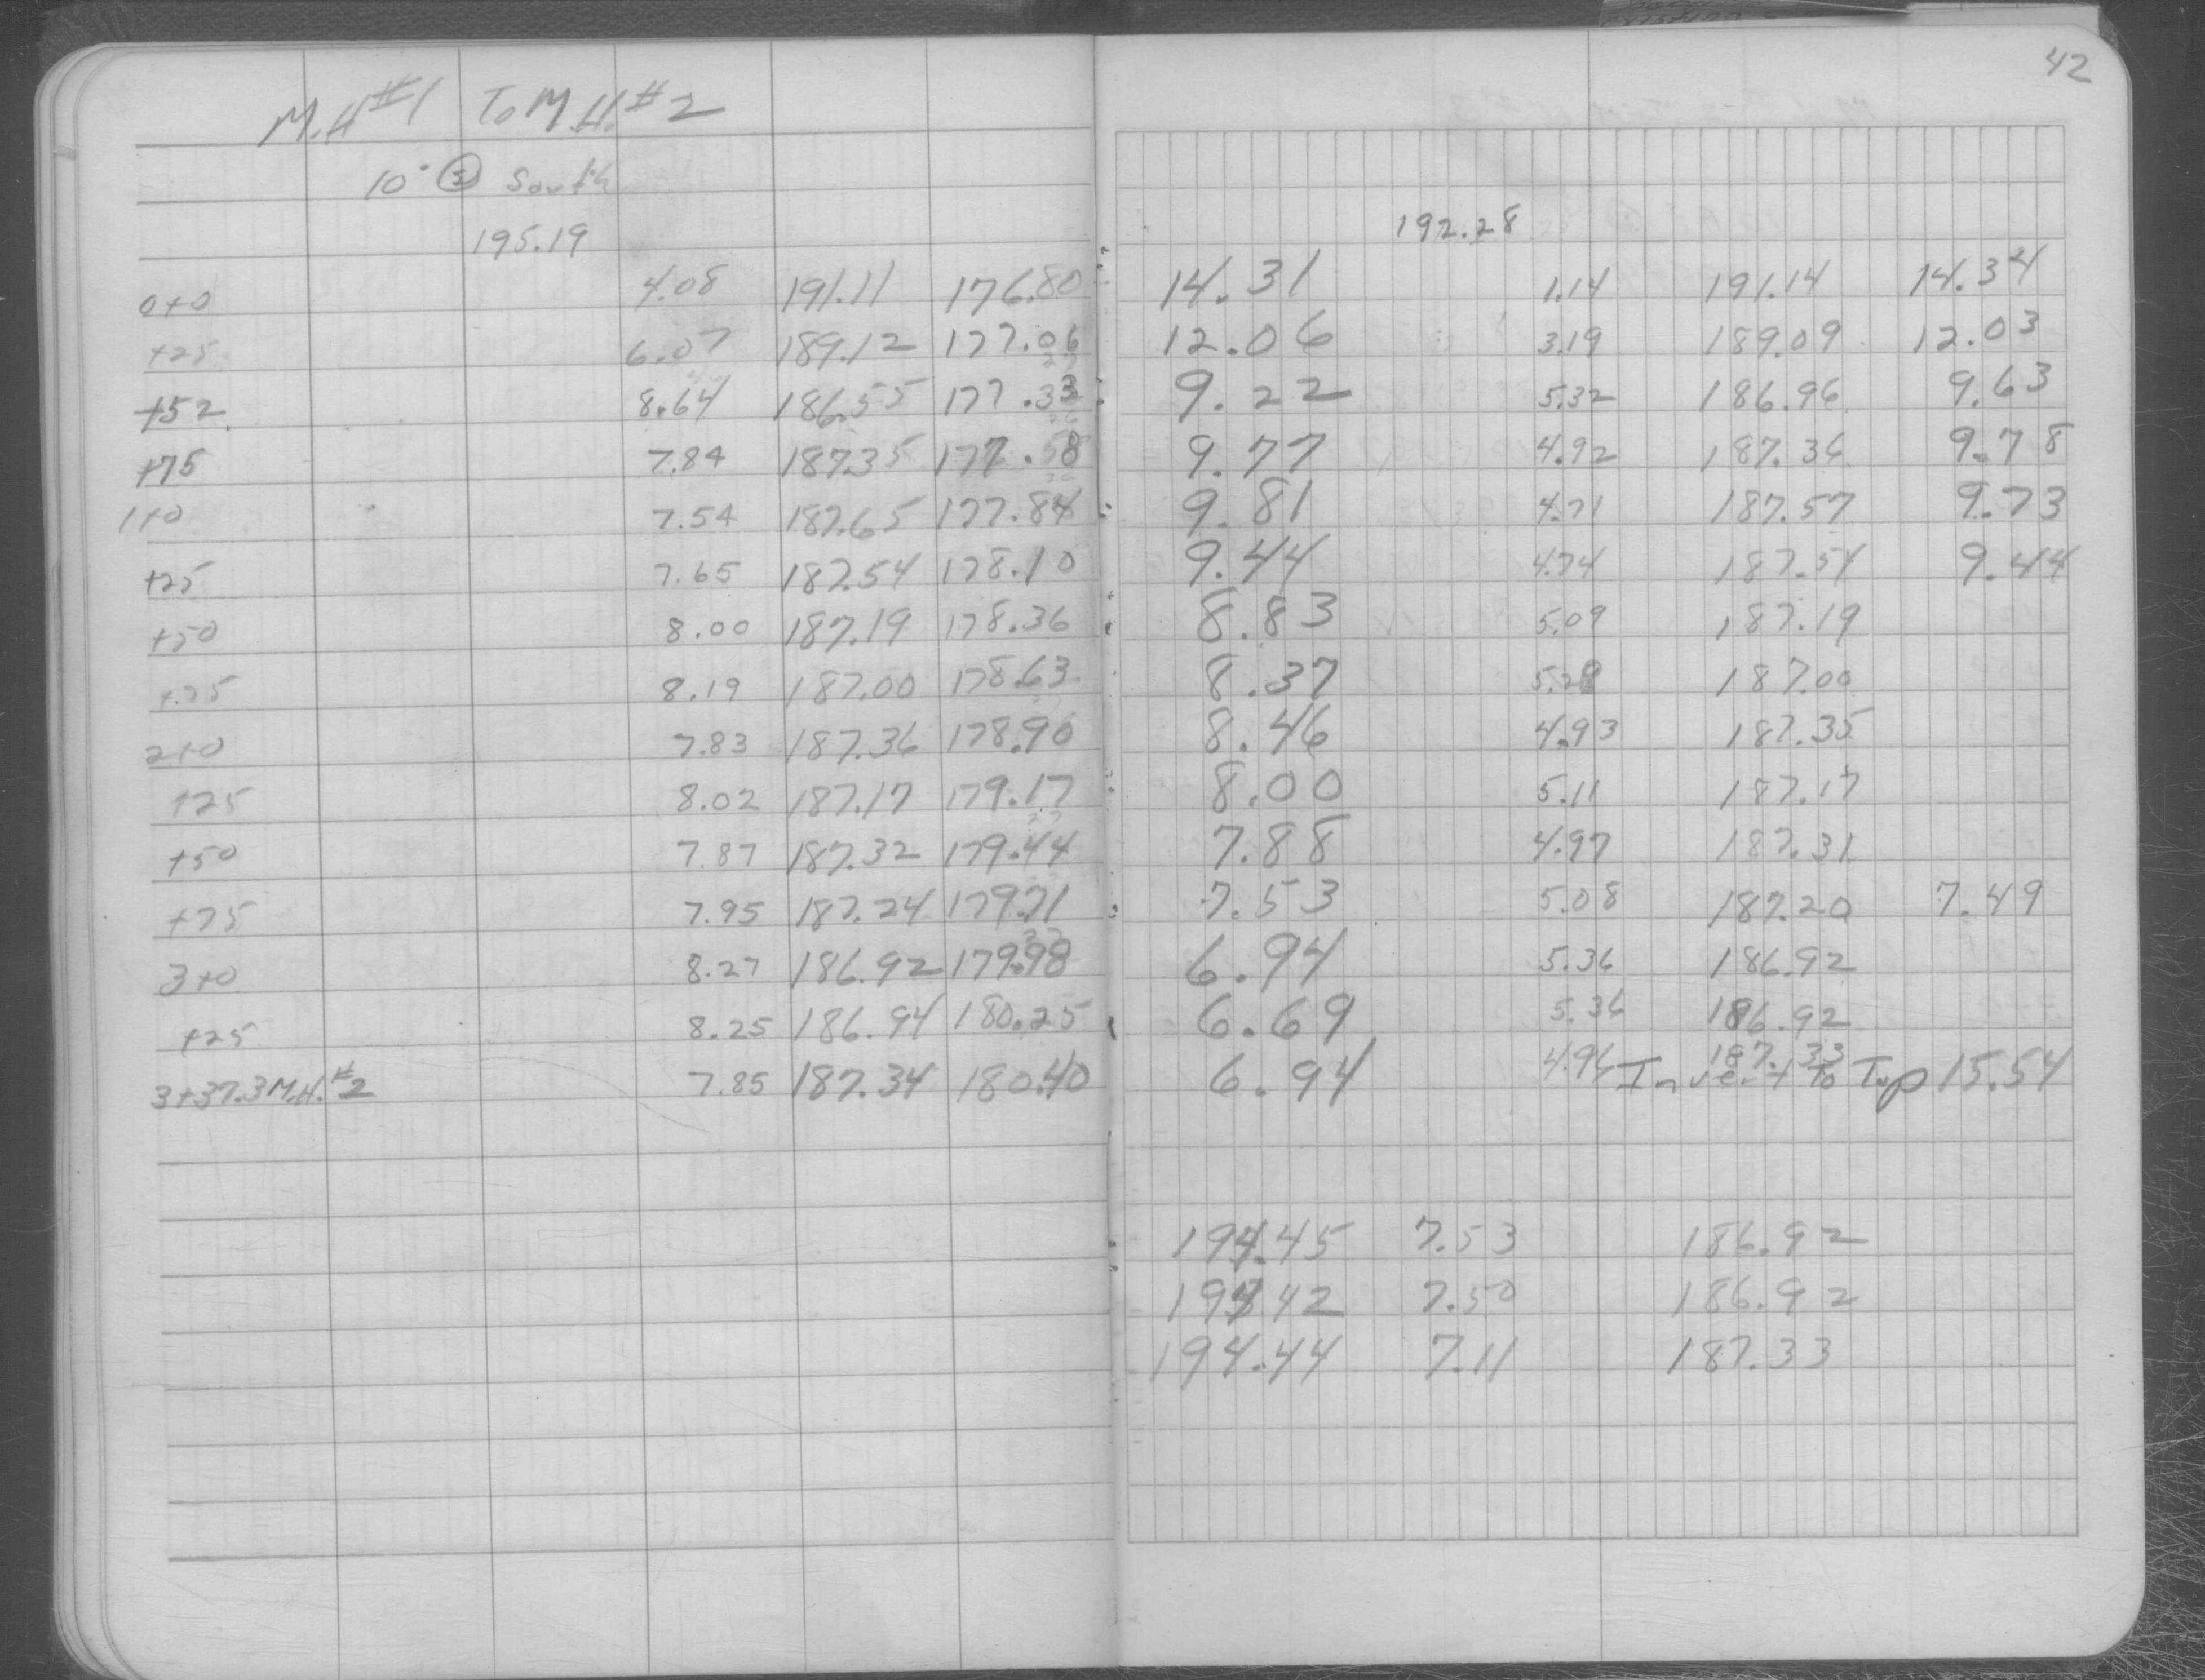 42
M.H #1 To M.H. #2
10' Ⓢ South
195.19 192.28
0+0 4.08 191.11 176.80 14.31 1.14 191.14 14.34
+25 6.07 189.12 177.06 12.06 3.19 189.09 12.03
+52 8.64 186.55 177.33 9.22 5.32 186.96 9.63
+75 7.84 187.35 177.58 9.77 4.92 187.36 9.78
1+0 7.54 187.65 177.84 9.81 4.71 187.57 9.73
+25 7.65 187.54 178.10 9.44 4.74 187.54 9.44
+50 8.00 187.19 178.36 8.83 5.09 187.19
+75 8.19 187.00 178.63 8.37 5.28 187.00
2+0 7.83 187.36 178.90 8.46 4.93 187.35
+25 8.02 187.17 179.17 8.00 5.11 187.17
+50 7.87 187.32 179.44 7.88 4.97 187.31
+75 7.95 187.24 179.71 7.53 5.08 187.20 7.49
3+0 8.27 186.92 179.98 6.94 5.36 186.92
+25 8.25 186.94 180.25 6.69 5.36 186.92
3+37.3 M.H. #2 7.85 187.34 180.40 6.94 4.95 187.33 Invert To Top 15.54
194.45 7.53 186.92
194.42 7.50 186.92
194.44 7.11 187.33